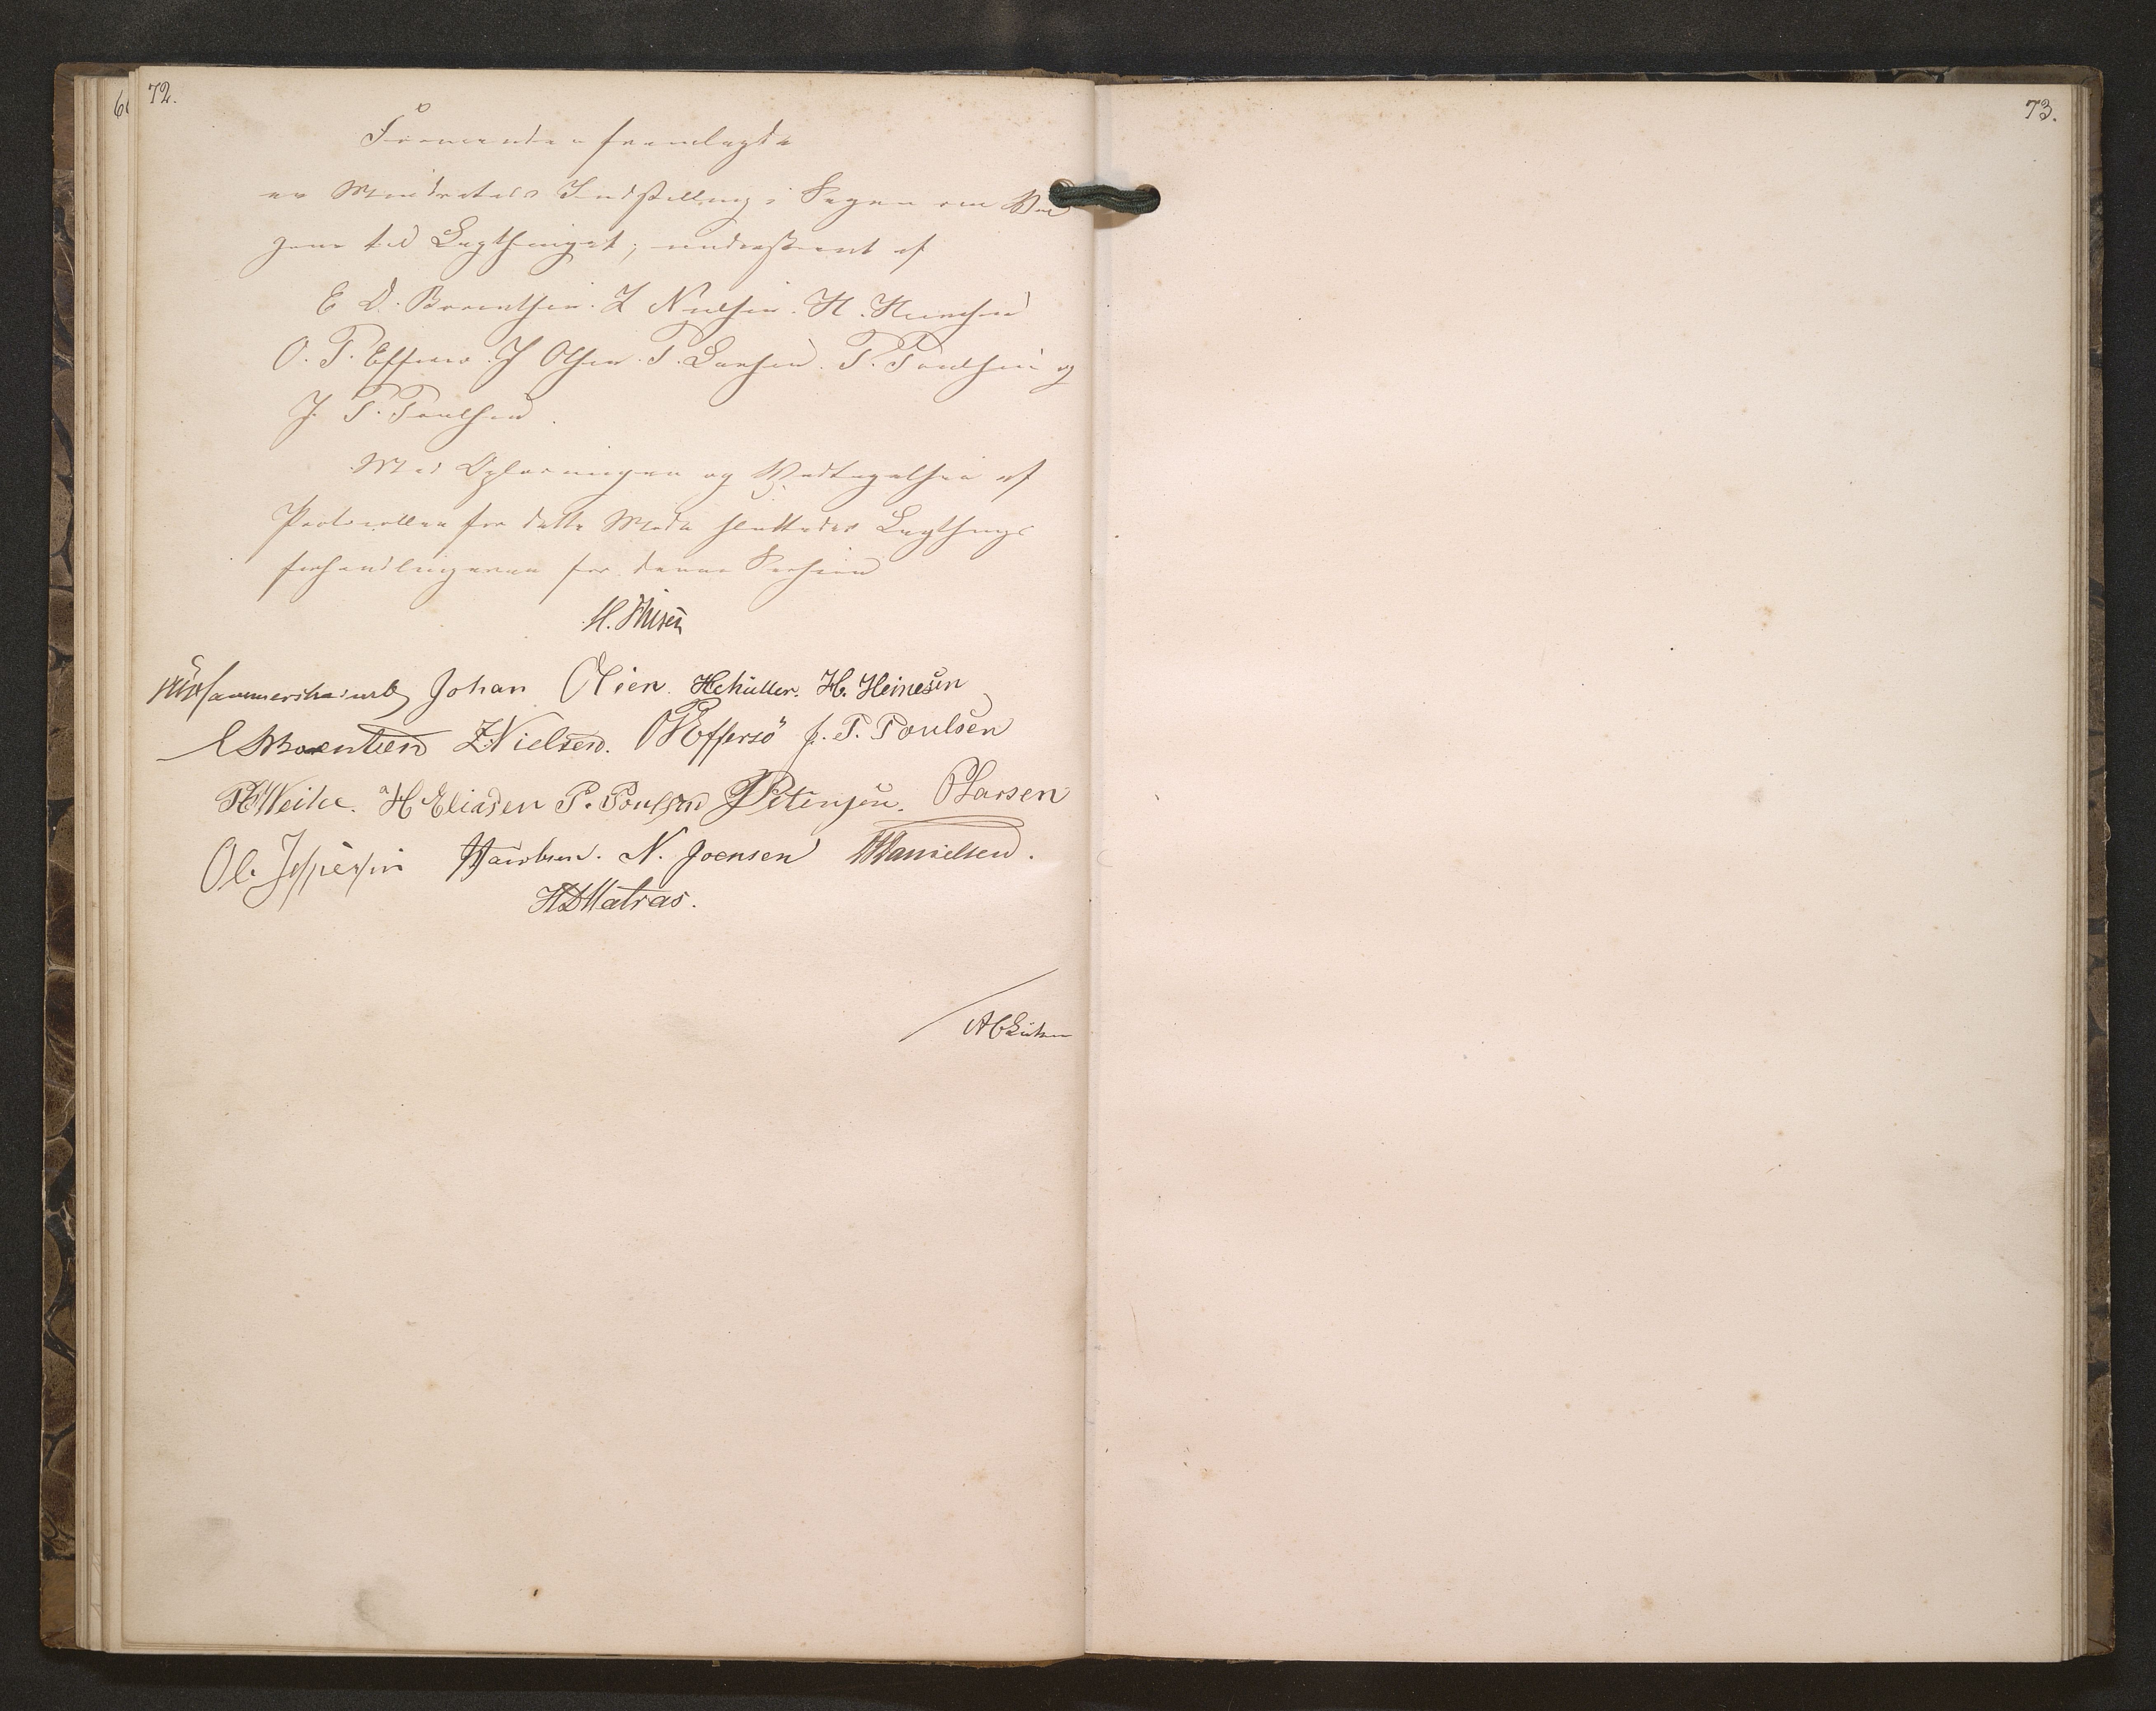 72.
Formanden fremlagde
en Mindretals Indstilling i Sagen om Val
gene til Lagthinget, underskrevet af
E. D. Bærentsen. Z Nielsen. H. Heinesen
O. P. Effersø. J Olsen. P. Larsen. P. Poulsen og
J. P. Poulsen.
Med Oplæsningen og Vedtagelsen af
Protocollen for dette Møde sluttedes Lagthings
forhandlingerne for denne Session
Hammershaimb Johan Olsen. HCMüller. H. Heinesen
Bærentsen Z. Nielsen. OPEffersö J. P. Poulsen
Weihe. H Eliasen P. Poulsen Petersen. PLarsen
Ol. Jespersen Jacobsen. N. Joensen Danielsen.
HDMatras.
73.